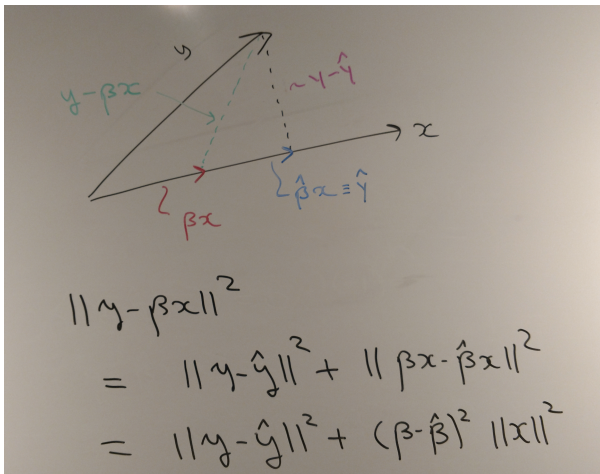 y
y-βx
~ y-ŷ
x
βx
β̂x ≡ ŷ
||y-βx||²
= ||y-ŷ||² + ||βx-β̂x||²
= ||y-ŷ||² + (β-β̂)² ||x||²